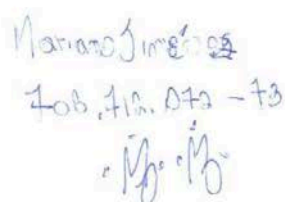 Mariano Jiménez
706.712.072-73